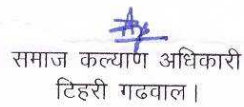 समाज कल्याण अधिकारी
टिहरी गढवाल।